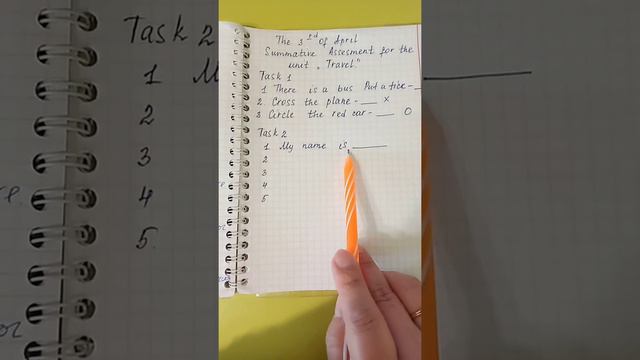 The 3rd of April
Summative Assesment for the
unit „Travel"
Task 1
1 There is a bus Put a tick -
2 Cross the plane - ___ x
3 Circle the red car - ___ O
Task 2
1 My name is ______
2
3
4
5